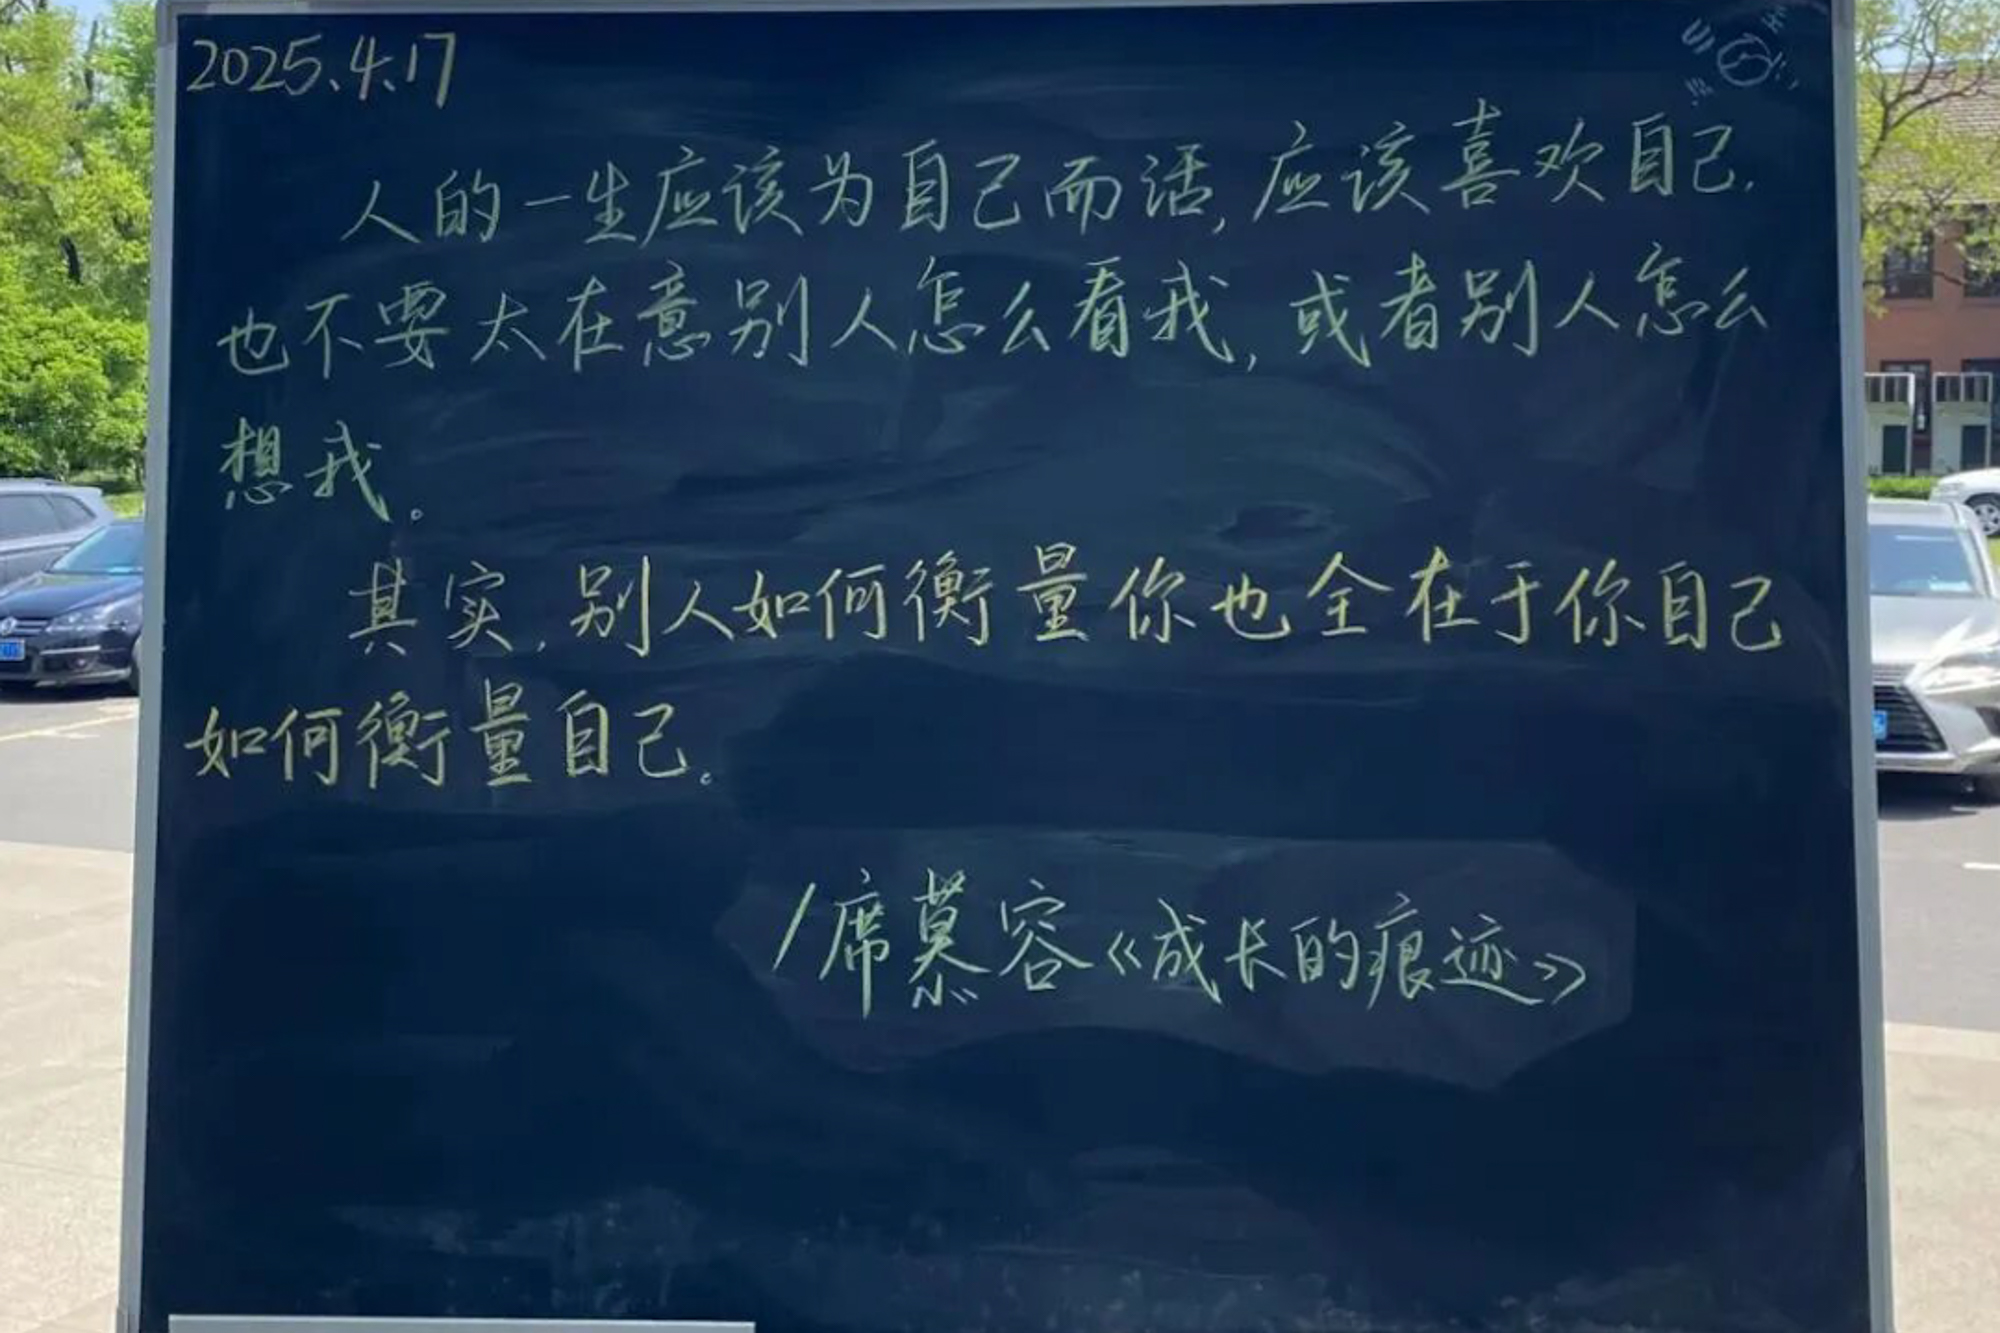 2025.4.17
人的一生应该为自己而活,应该喜欢自己.
也不要太在意别人怎么看我,或者别人怎么
想我。
其实,别人如何衡量你也全在于你自己
如何衡量自己。
/席慕容《成长的痕迹》